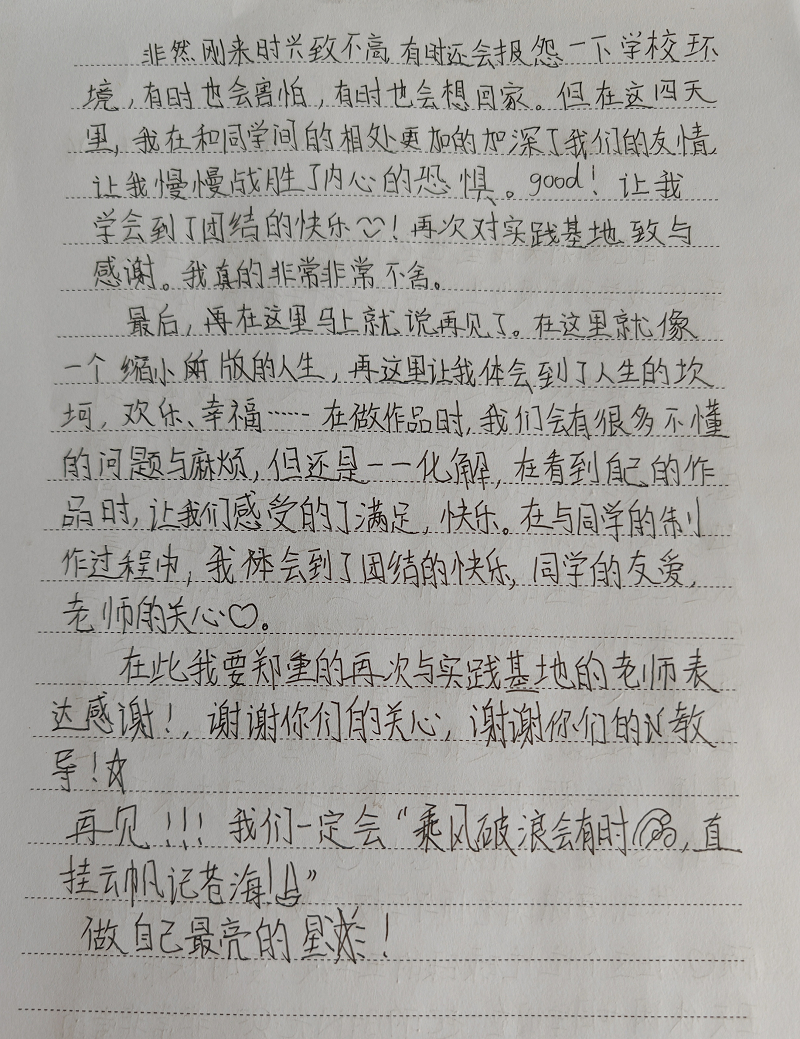 非然刚来时兴致不高,有时还会报怨一下学校环
境,有时也会害怕,有时也会想回家。但在这四天
里,我在和同学间的相处更加的加深了我们的友情,
让我慢慢战胜了内心的恐惧。good!让我
学会到了团结的快乐♡!再次对实践基地致与
感谢。我真的非常非常不舍。
最后,再在这里马上就说再见了。在这里就像
一个缩小版的人生,再这里让我体会到了人生的坎
坷,欢乐、幸福……在做作品时,我们会有很多不懂
的问题与麻烦,但还是一一化解,在看到自己的作
品时,让我们感受的了满足,快乐。在与同学的制
作过程中,我体会到了团结的快乐,同学的友爱,
老师的关心♡。
在此我要郑重的再次与实践基地的老师表
达感谢!,谢谢你们的关心,谢谢你们的教
导!☆
再见!!!我们一定会“乘风破浪会有时,直
挂云帆记苍海!”
做自己最亮的星!